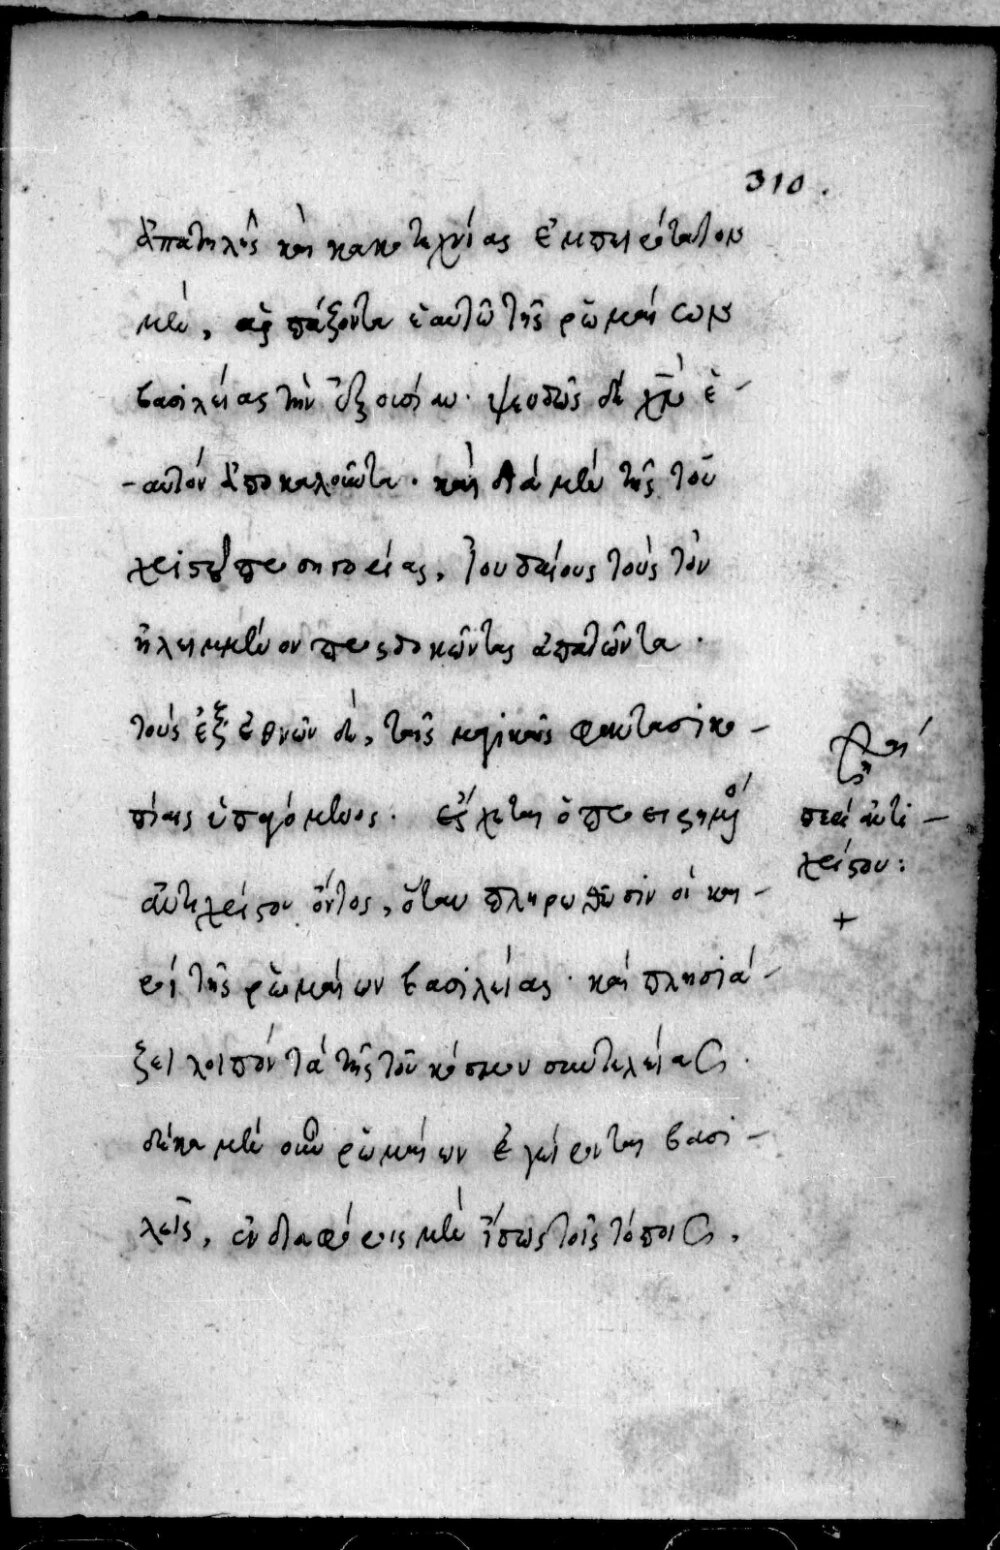 310.
ἀπατηλῆς καὶ κακοτεχνίας ἐμπειρότατον
μὲν, ἁρπάξοντα ἑαυτῶ τῆς ῥωμαίων
βασιλείας τὴν ἐξουσίαν. ψευδῶς δὲ χν̄ ἑ-
-αυτόν ἀποκαλοῦντα. καὶ διά μὲν τῆς τοῦ
χριστοῦ προσηγορίας, ἰουδαίους τοὺς τὸν
ἠλειμμένον προσδοκῶντας ἀπατῶντα.
τοὺς ἐξ ἐθνῶν δὲ, ταῖς μαγικαῖς φαντασιοκο-
πίαις ὑπαγόμενος. ἔρχεται ὁ προειρημένος
ἀντίχριστος οὗτος, ὅταν πληρωθῶσιν οἱ και-
ροί τῆς ῥωμαίων βασιλείας. καί πλησιά-
ζει λοιπόν τά τῆς τοῦ κόσμου συντελείας.
δέκα μὲν οὖν ῥωμαίων ἐγείρονται βασι-
λεῖς, ἐν διαφόροις μὲν ἴσως τοῖς τόποις,
περί ἀντι-
χρίστου:
+